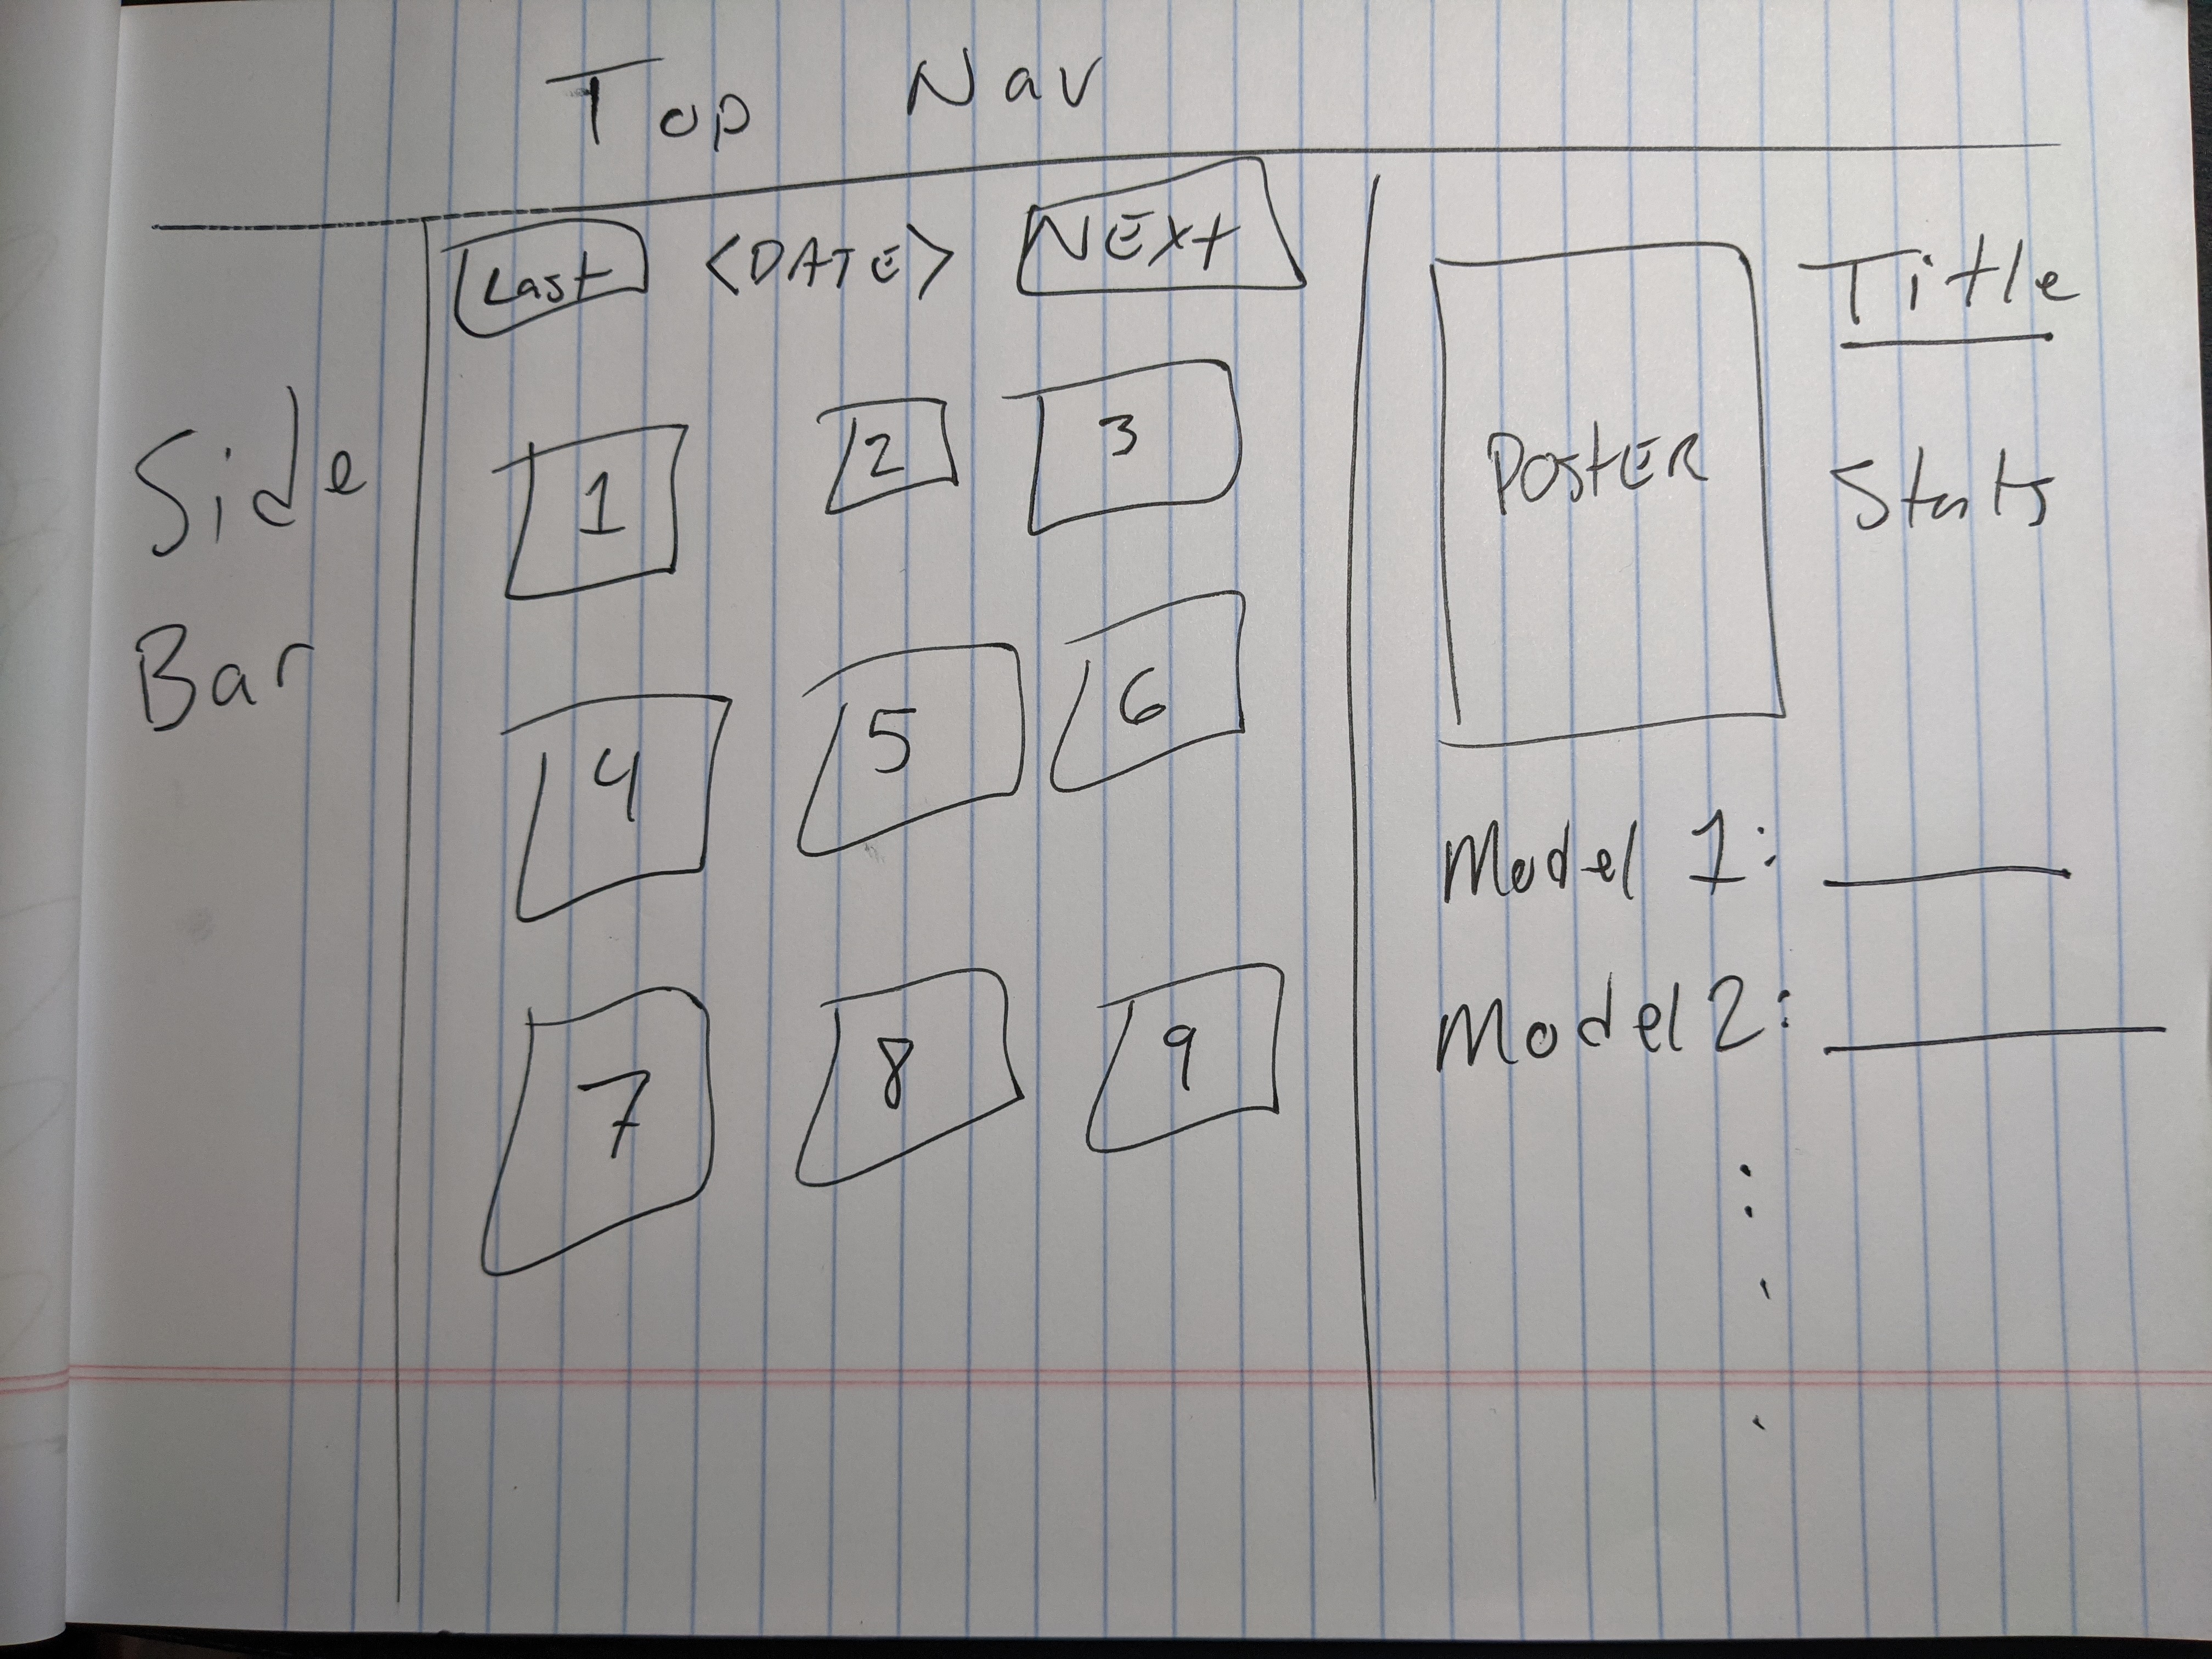 Top Nav
Side
Bar
Last <DATE> NEXT
1 2 3
4 5 6
7 8 9
POSTER
Title
Stats
Model 1:
Model 2: